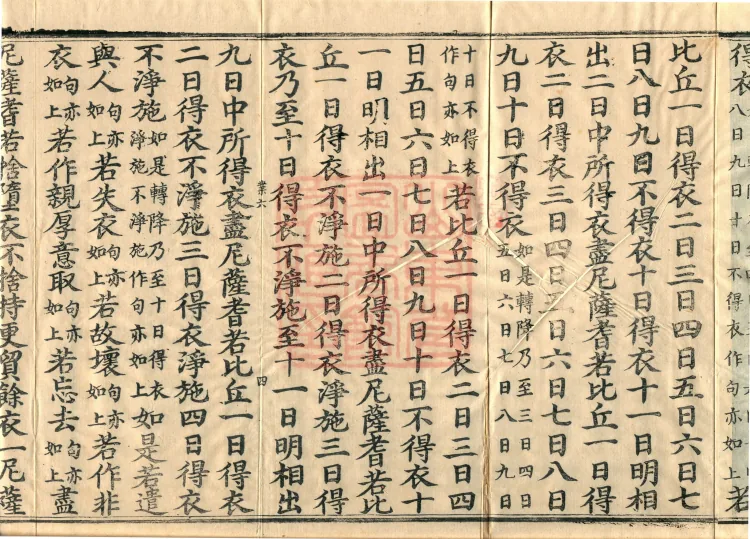 得衣八日九日十日不得衣作句亦如上若
比丘一日得衣二日三日四日五日六日七
日八日九日不得衣十日得衣十一日明相
出二日中所得衣盡尼薩耆若比丘一日得
衣二日得衣三日四日五日六日七日八日
九日十日不得衣如是轉降乃至三日四日五日六日七日八日九日
十日不得衣作句亦如上若比丘一日得衣二日三日四
日五日六日七日八日九日十日不得衣十
一日明相出一日中所得衣盡尼薩耆若比
丘一日得衣不淨施二日得衣淨施三日得
衣乃至十日得衣不淨施至十一日明相出
業六 四
九日中所得衣盡尼薩耆若比丘一日得衣
二日得衣不淨施三日得衣淨施四日得衣
不淨施如是轉降乃至十日得衣淨施不淨施作句亦如上如是若遣
與人句亦如上若失衣句亦如上若故壞句亦如上若作非
衣句亦如上若作親厚意取句亦如上若忘去句亦如上盡
尼薩耆若捨墮衣不捨持更貿餘衣一尼薩